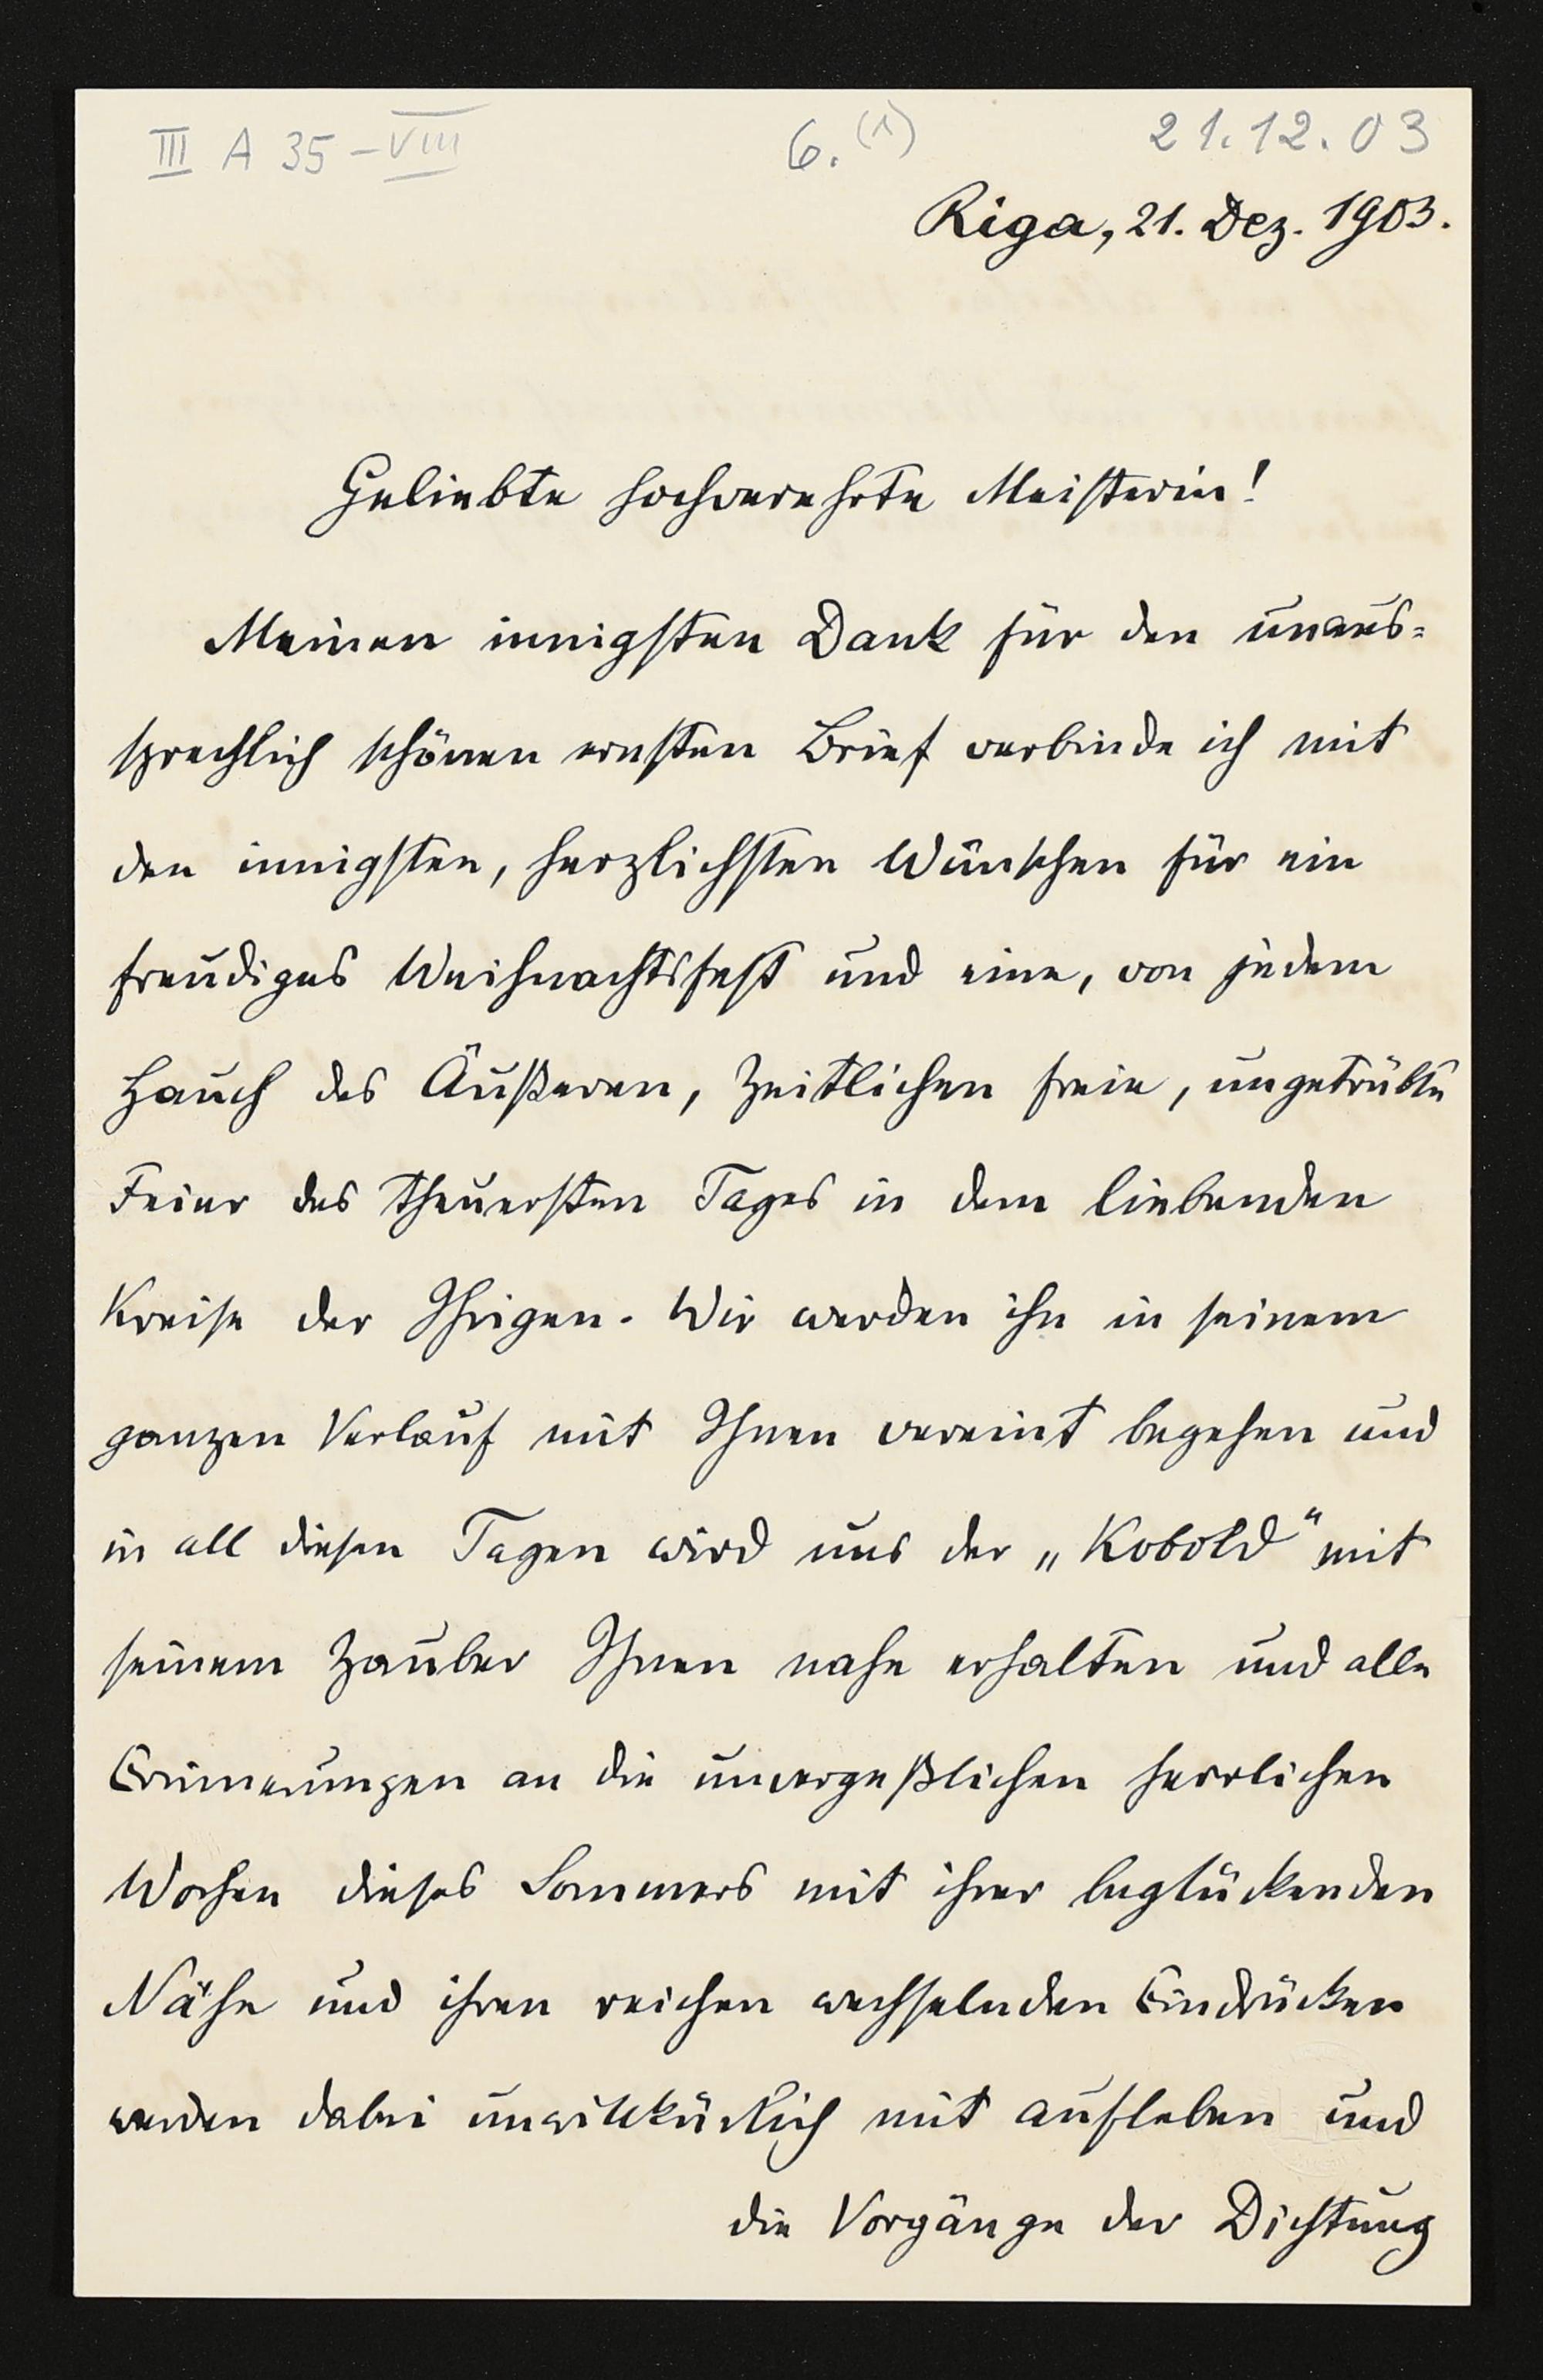 III A 35 – VIII
6. (1)
21.12.03
Riga, 21. Dez. 1903.
Geliebte hochverehrte Meisterin!
Meinen innigsten Dank für den unaus-
sprechlich schönen ernsten Brief verbinde ich mit
den innigsten, herzlichsten Wünschen für ein
freudiges Weihnachtsfest und eine, von jedem
Hauch des Äußeren, Zeitlichen freie, ungetrübte
Feier des theuersten Tages in dem liebenden
Kreise der Ihrigen. Wir werden ihn in seinem
ganzen Verlauf mit Ihnen vereint begehen und
in all diesen Tagen wird uns der „Kobold“ mit
seinem Zauber Ihnen nahe erhalten und alle
Erinnerungen an die unvergeßlichen herrlichen
Wochen dieses Sommers mit ihrer beglückenden
Nähe und ihren reichen wechselnden Eindrücken
werden dabei unwillkürlich mit aufleben und
die Vorgänge der Dichtung